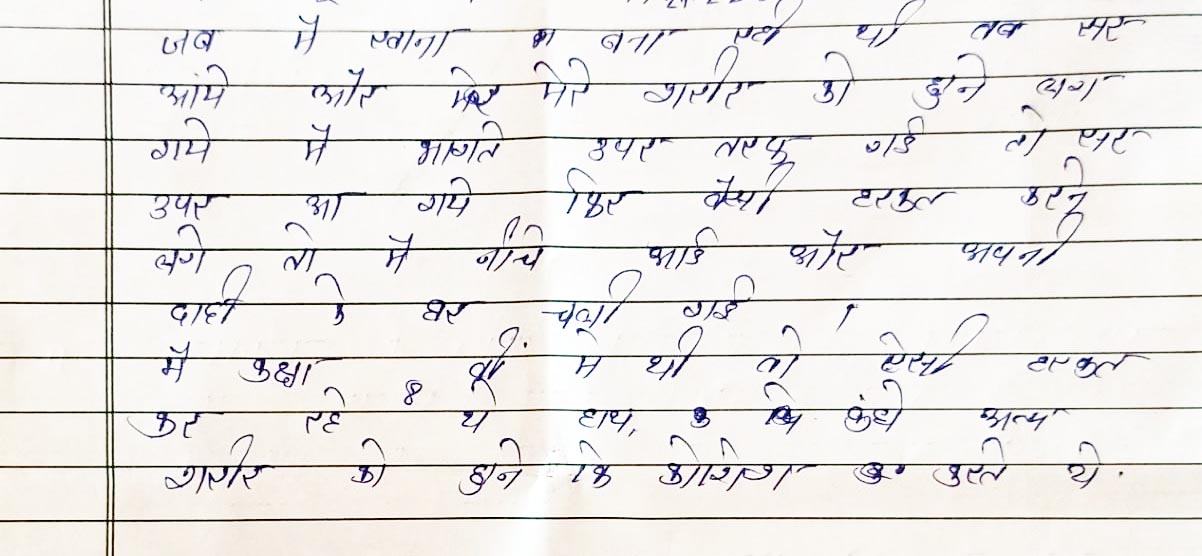 जब मै खाना बना रही थी तब सर
आये और मेरे शरीर को छुने लग
गये मै भागते उपर तरफ गई तो सर
उपर आ गये फिर वैसी हरकत करने
लगे तो मै नीचे आई और अपनी
दादी के घर चली गई ।
मै कक्षा 8 वीं मे थी तो ऐसी हरकत
कर रहे थे हाथ, कंधे अन्य
शरीर को छुने कि कोशिश करते थे .